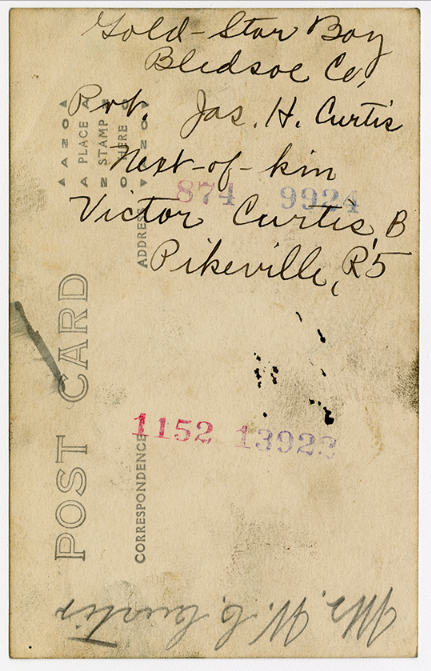 Gold-Star Boy
Bledsoe Co,
Pvt. Jas. H. Curtis
Next-of-kin
874 9924
Victor Curtis, B
Pikeville, R5
1152 13923
POST CARD
CORRESPONDENCE
ADDRESS
AZO PLACE AZO
STAMP
AZO HERE AZO
W. C. Curtis